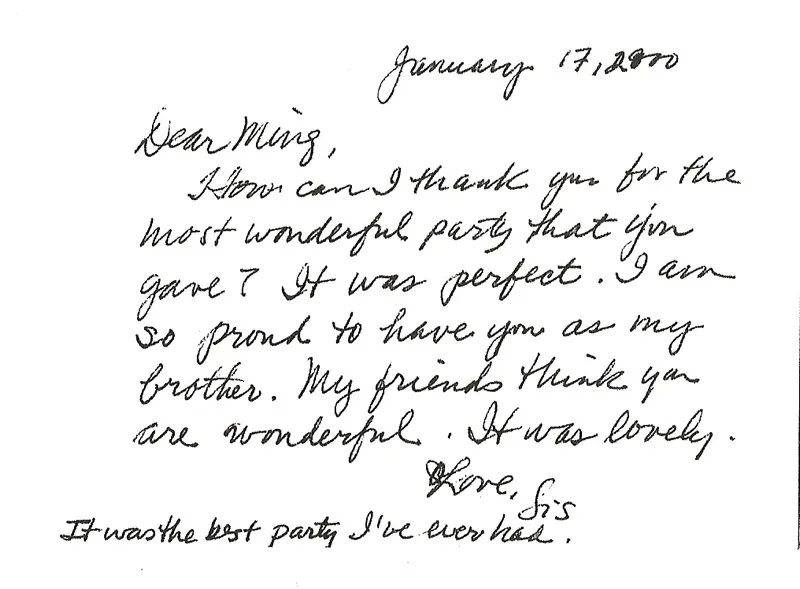 January 17, 2000
Dear Ming,
How can I thank you for the
most wonderful party that you
gave? It was perfect. I am
so proud to have you as my
brother. My friends think you
are wonderful. It was lovely.
Love, Sis
It was the best party I've ever had.